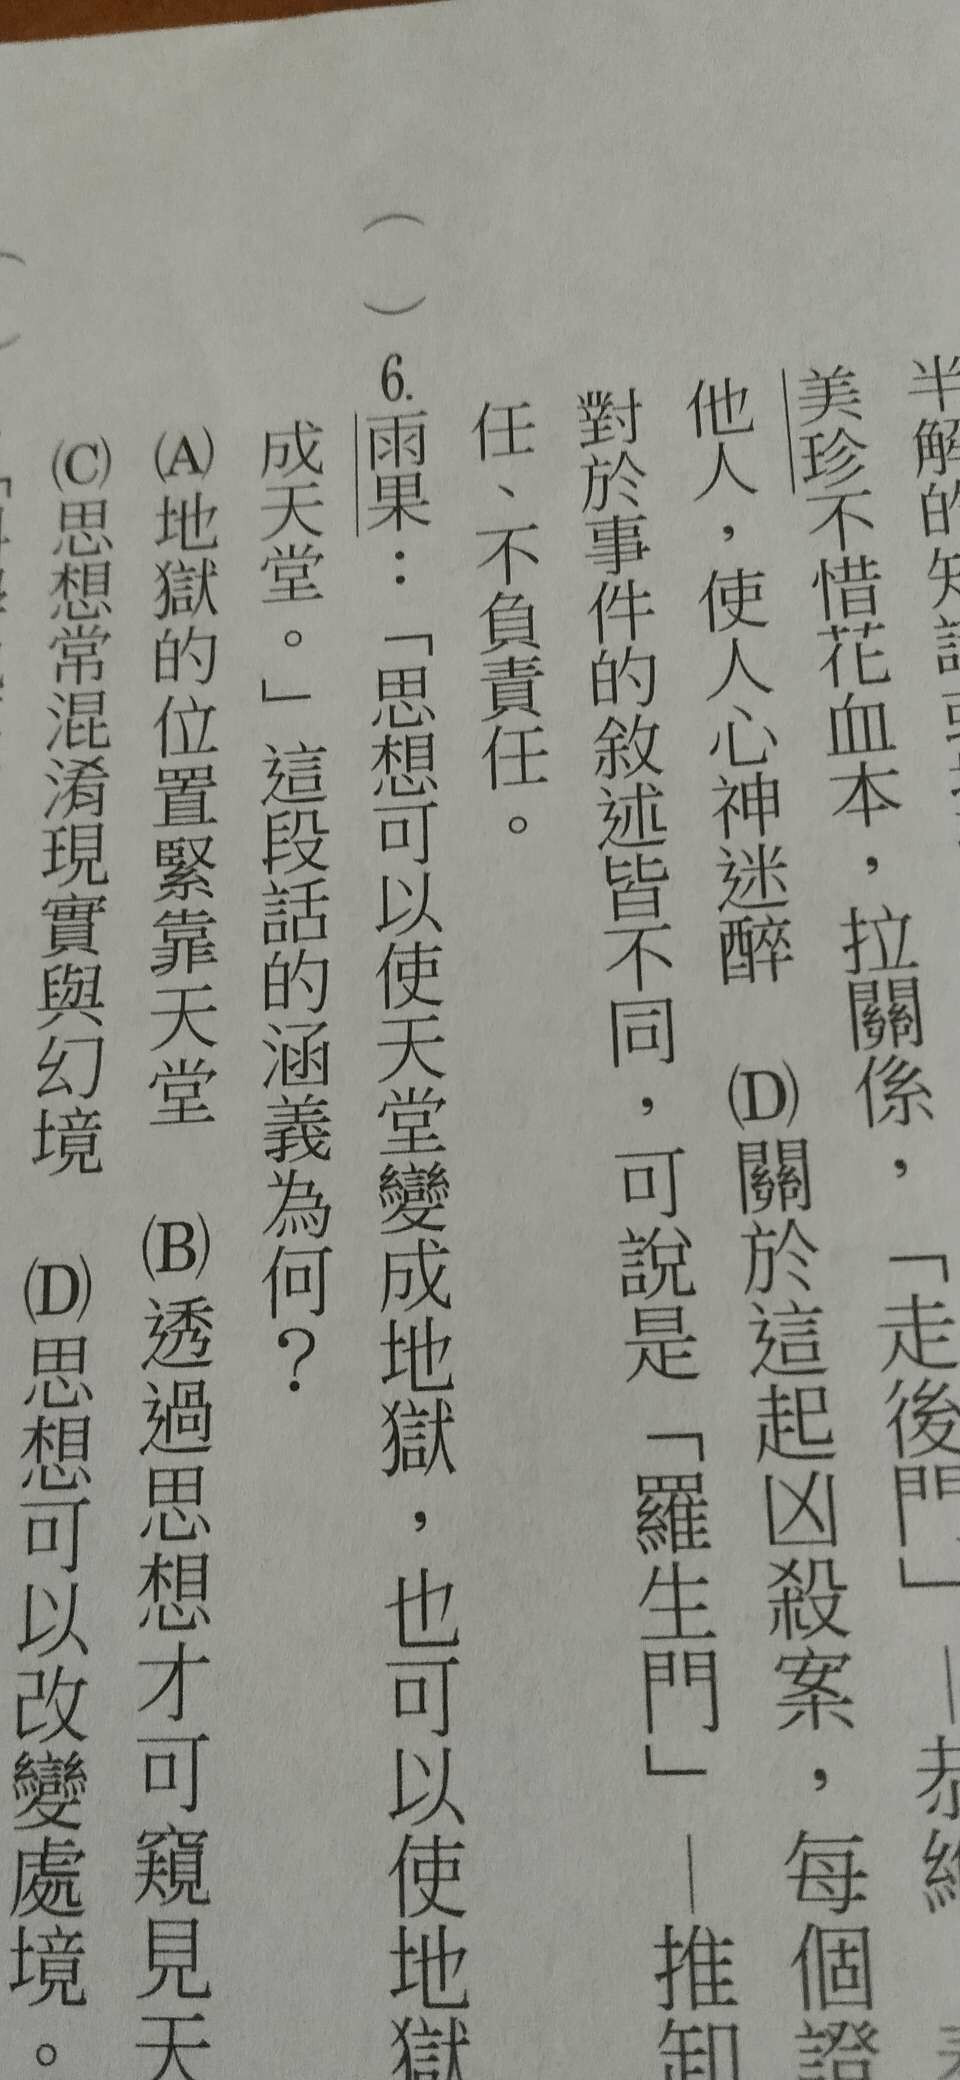 半解的知
美珍不惜花血本，拉關係，「走後門」—恭維
他人，使人心神迷醉　(D)關於這起凶殺案，每個證
對於事件的敘述皆不同，可說是「羅生門」—推卸
任、不負責任。
(　)6.雨果：「思想可以使天堂變成地獄，也可以使地獄
成天堂。」這段話的涵義為何？
(A)地獄的位置緊靠天堂　(B)透過思想才可窺見天
(C)思想常混淆現實與幻境　(D)思想可以改變處境。